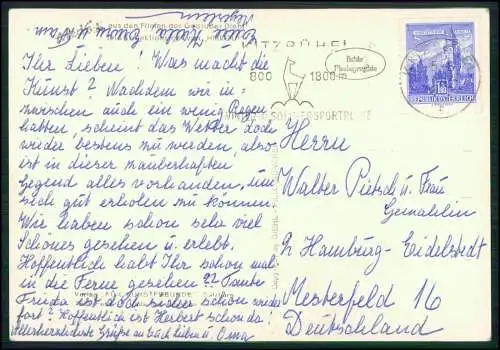 aus den Filmen der Gebrüder Diehl
Ihr Lieben! Was macht die
Kunst? Nachdem wir in-
zwischen auch ein wenig Regen
hatten, scheint das Wetter doch
wieder bestens zu werden, also
ist in dieser zauberhaften
Gegend alles vorhanden, um
sich gut erholen zu können.
Wir haben schon sehr viel
Schönes gesehen u. erlebt.
Hoffentlich habt Ihr schon mal
in die Ferne gesehen?? Tante
Frida ist doch sicher schon wieder
fort? Hoffentlich ist Herbert schon da!
Allerherzlichste Grüße an Euch Lieben u. Oma
KITZBÜHEL
800 1800 m
WINTER-SOMMERSPORTPLATZ
REPUBLIK ÖSTERREICH
Herrn
Walter Pietsch u. Frau
Gemahlin
Hamburg-Eidelstedt
Mesterfeld 16
Deutschland